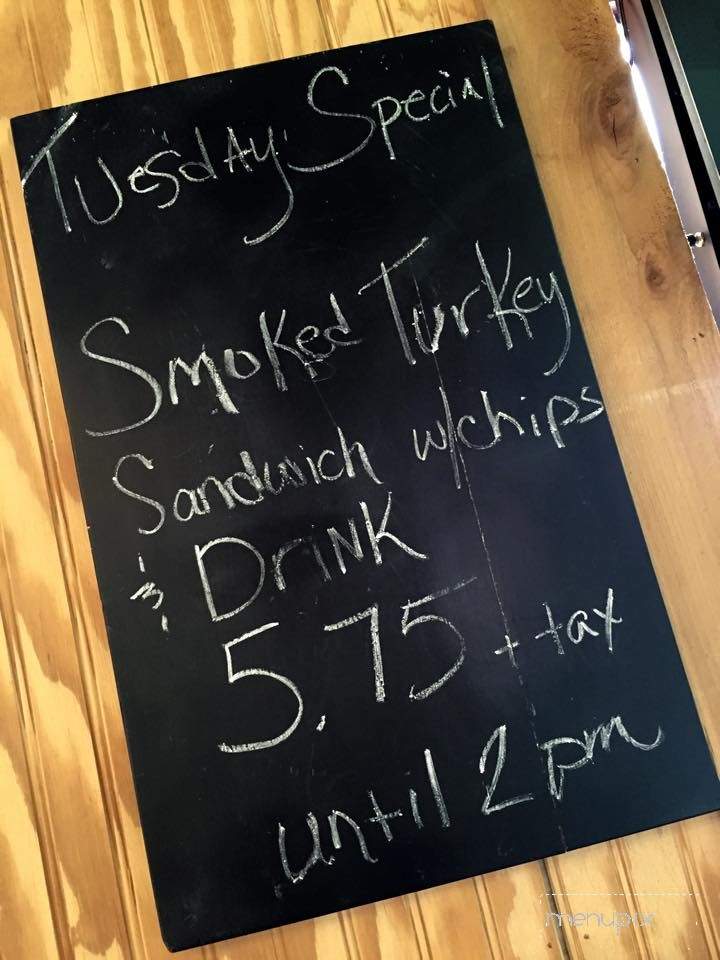 Tuesday Special
Smoked Turkey
Sandwich w/chips
& Drink
5.75 + tax
until 2 pm
menupix